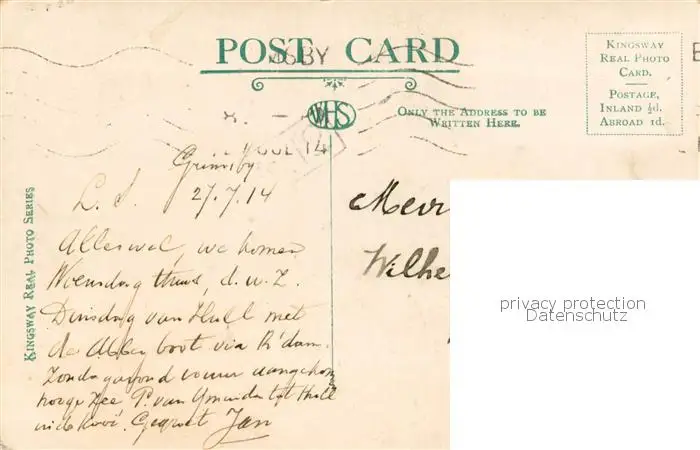 POST CARD
GRIMSBY
JUL 14
WHS
KINGSWAY
REAL PHOTO
CARD.
POSTAGE,
INLAND ½d.
ABROAD 1d.
ONLY THE ADDRESS TO BE
WRITTEN HERE.
KINGSWAY REAL PHOTO SERIES
Grimsby
27.7.14
L. S.
Allerwel, we komen
Woensdag thuis, d.w.z.
Dinsdag van Hull met
de Abbey boot via R'dam.
Zondagavond aangekomen
hooge Zee P. van Ymuiden tot Hull
Gegroet Jan
Mevr
Wilhe
privacy protection
Datenschutz